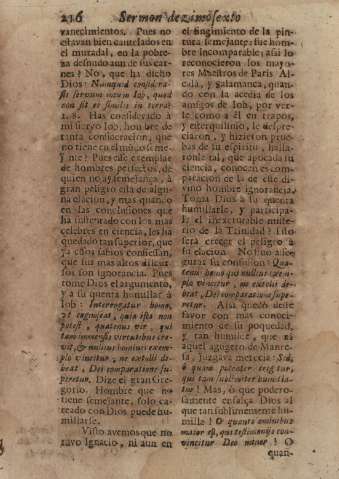 216 Sermon dezimosexto
vanecimientos. Pues no
estavan bien cautelados en
el muradal, en la pobre-
za desnudo aun de sus car-
nes? No, que ha dicho
Dios: Nunquid considera-
sti servum meum Iob, quod
non sit ei similis in terra?
1.8. Has considerado à
mi siervo Iob, hombre de
tanta consideracion, que
no tiene en el mundo seme
jante? Pues esse exemplar
de hombres perfectos, de
quien no ay semejança, à
gran peligro està de algu-
na elacion, y mas quando
en las conclusiones que
ha sustentado con los mas
celebres en ciencia, les ha
quedado tan superior, que
ya essos sabios confiessan,
que sus mas altos discur-
sos son ignorancia. Pues
tome Dios el argumento,
y a su quenta humillar à
Iob: Interrogatur homo,
ut
potest, quatenus vir, qui
tam immensis virtutibus cre-
vit, & nullius hominis exem-
plo vincitur, ne extolli de-
beat, Dei comparatione su-
peretur. Dize el gran Gre-
gorio. Hombre que no
tiene semejante, solo ca-
reado con Dios puede hu-
millarse.
Visto avemos que no
tuvo Ignacio, ni aun en
el fingimiento de la pin-
tura semejante: fue hom-
bre incomparable; assi lo
reconocieron los mayo
res Maestros de Paris, Al-
calà, y Salamanca, quan-
do con la acedia de los
amigos de Iob, por ver-
le como a èl en trapos,
y esterquilinio, le despre-
ciaron, y hizieron prue-
bas de su espiritu, halla-
ronle tal, que apocada su
ciencia, conocen es com-
paracion de la de este di-
vino hombre ignorancia.
Toma Dios à su quenta
humillarlo, y participa-
le el inexcrutable miste-
rio de la Trinidad! Esto
serà crecer el peligro à
su elacion. No sino asse-
gurar su confusion: Qua-
tenus homo qui nullius exem-
plo vincitur, ne extolli de-
beat, Dei comparatione supe-
retur. Assi quedò deste
favor con mas conoci-
miento de su poquedad,
y tan humilde, que ni
aquel agugero de Manre-
sa, juzgava merecia: Sed,
ò quam potenter erigitur,
qui tam sublimiter humilia-
tur! Mas, ò que podero-
samente ensalça Dios al
que tan sublimemente hu-
milla! O quanto omnibus
maior est, qui testimonio con-
vincitur Deo minor! O
quan-